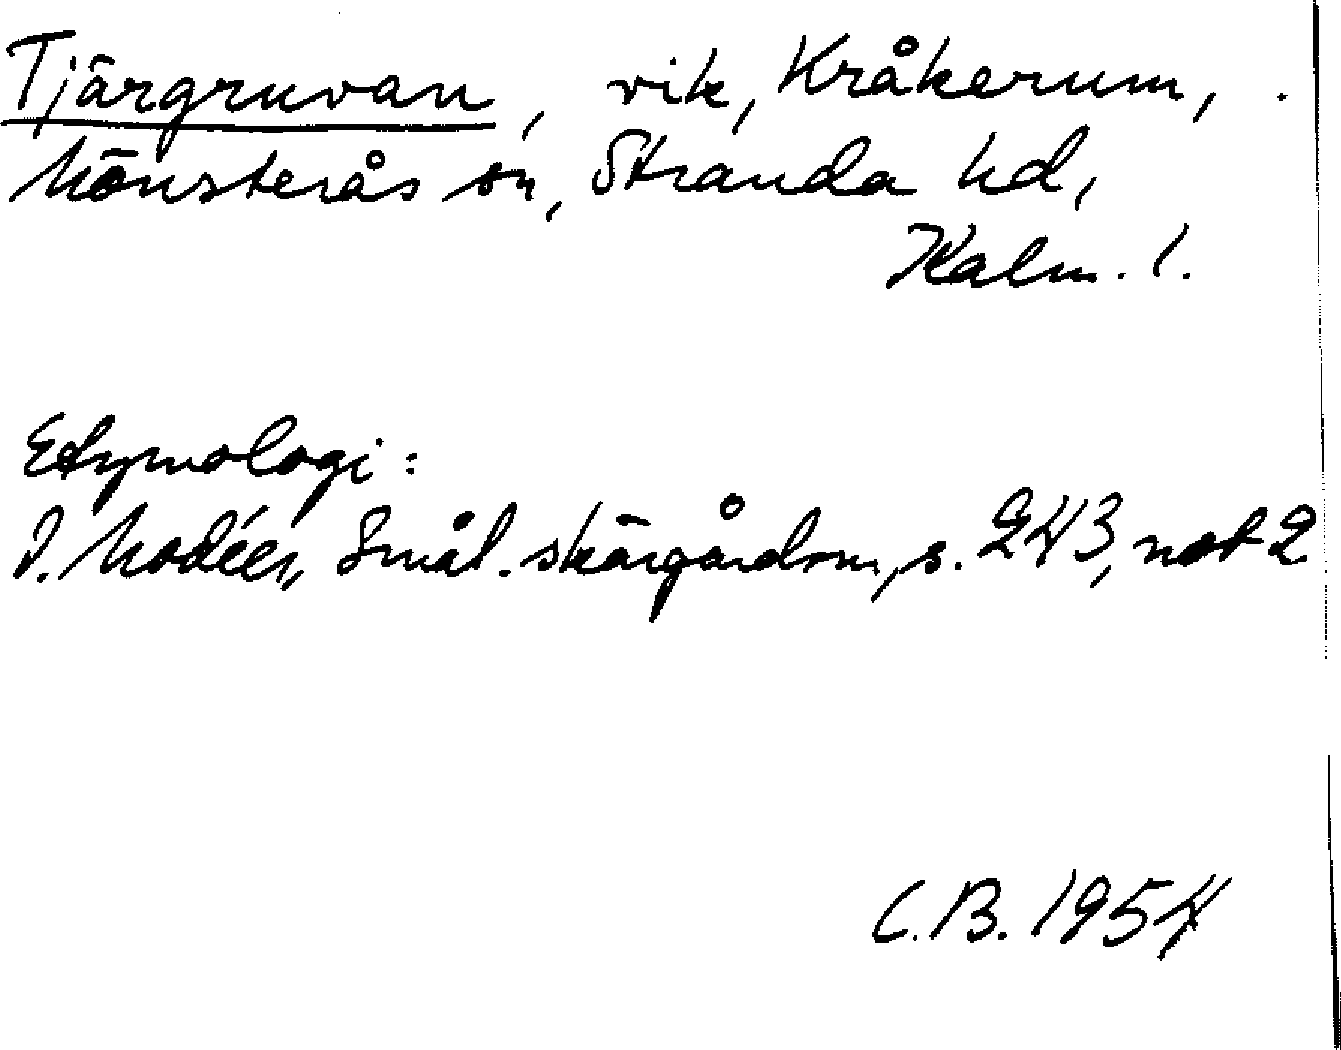 Tjärgruvan, vik, Kråkerum,
Mönsterås sn, Stranda hd,
Kalm. l.
Etymologi:
I. Modéer, Smål. skärgårdsn, s. 243, not 2
C.B. 1954